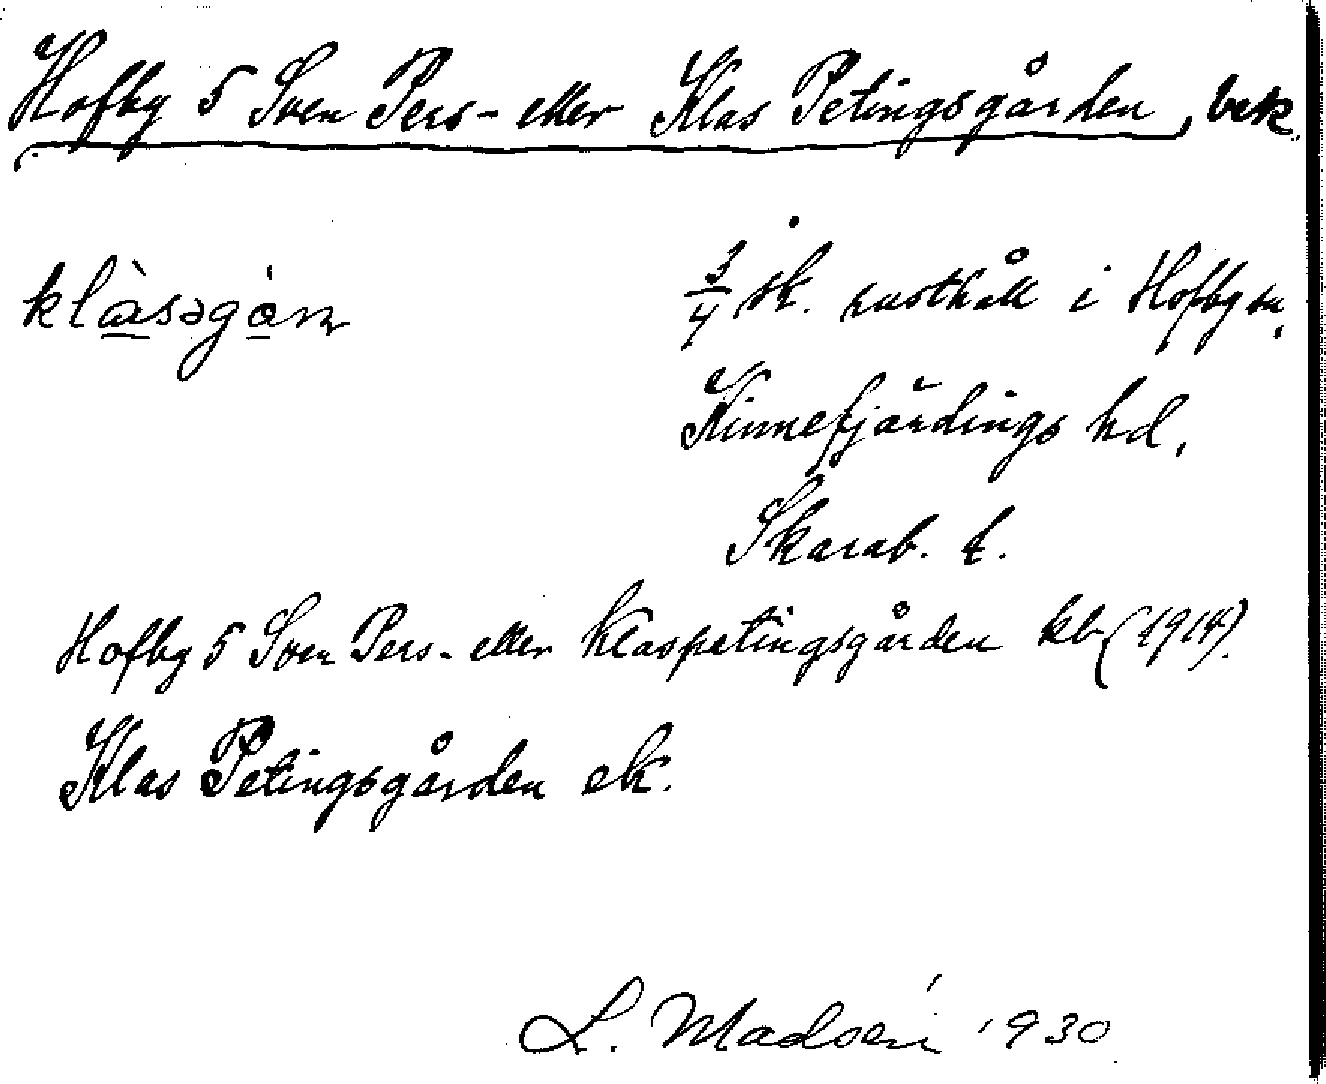 Hofby 5 Sven Pers- eller Klas Petingsgården, bek.
klàsəgån
3/4 sk. rusthåll i Hofby sn,
Kinnefjärdings hd,
Skarab. l.
Hofby 5 Sven Pers- eller Klaspetingsgården kb (1914).
Klas Petingsgården ek.
L. Madsén 1930